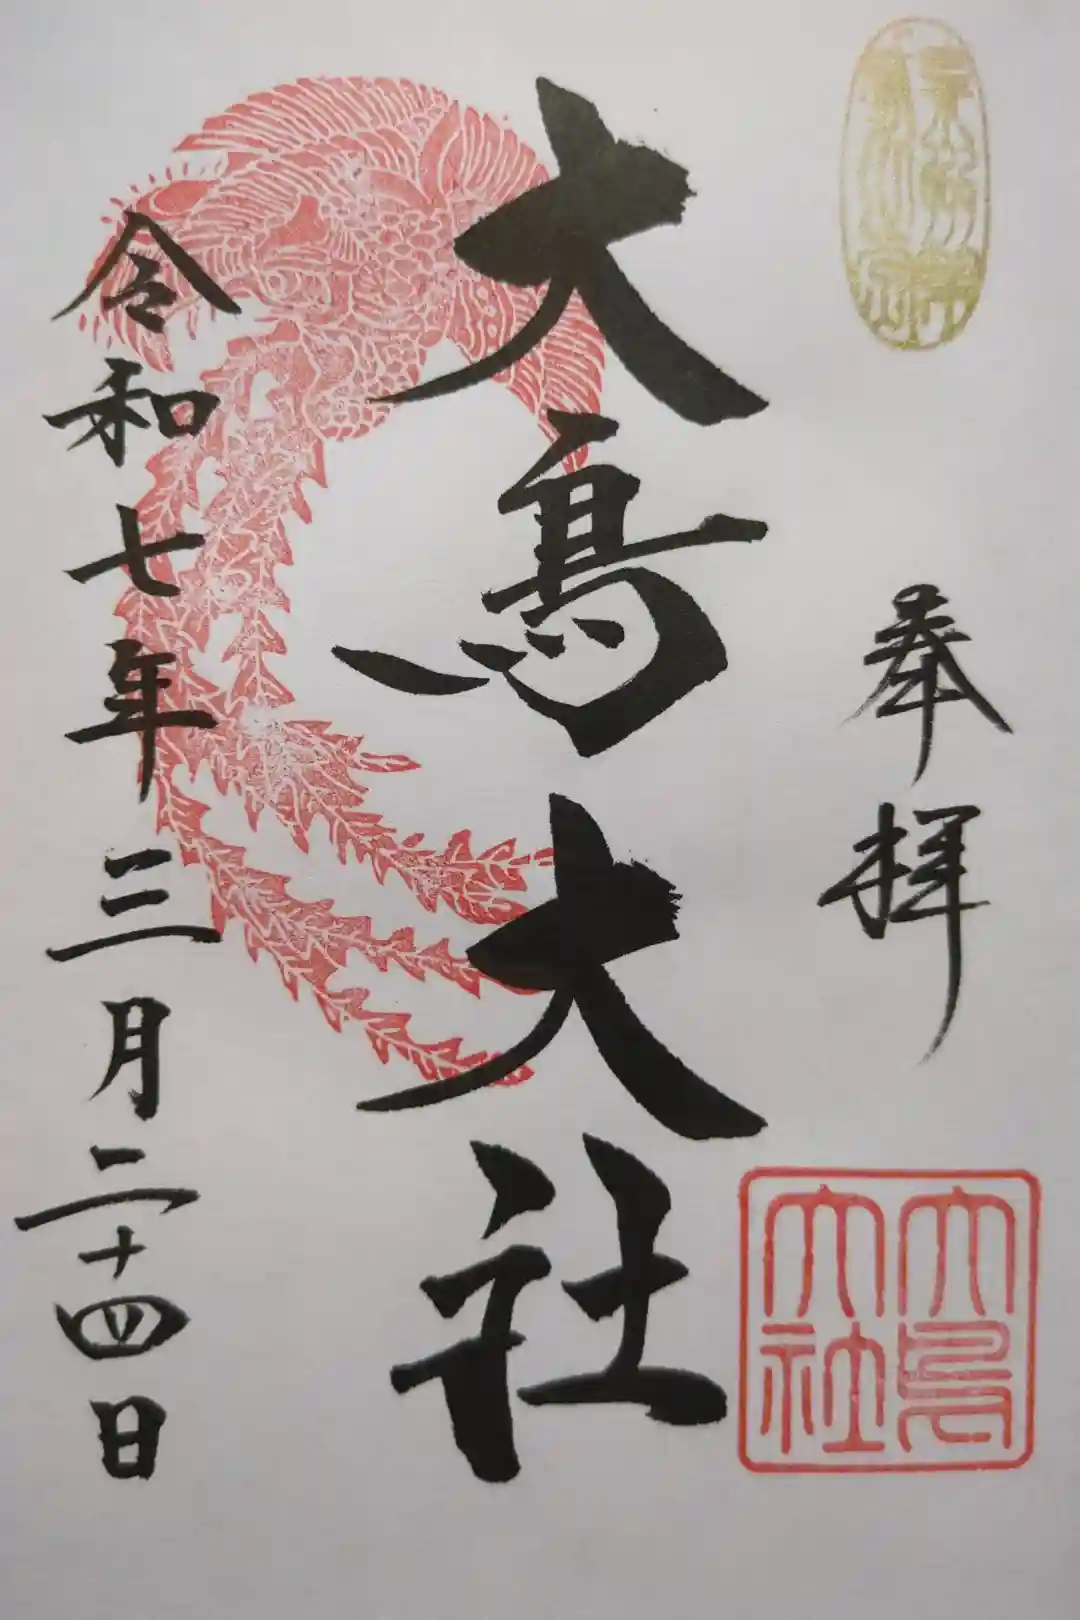 奉拝
大鳥大社
令和七年三月二十四日
大鳥大社